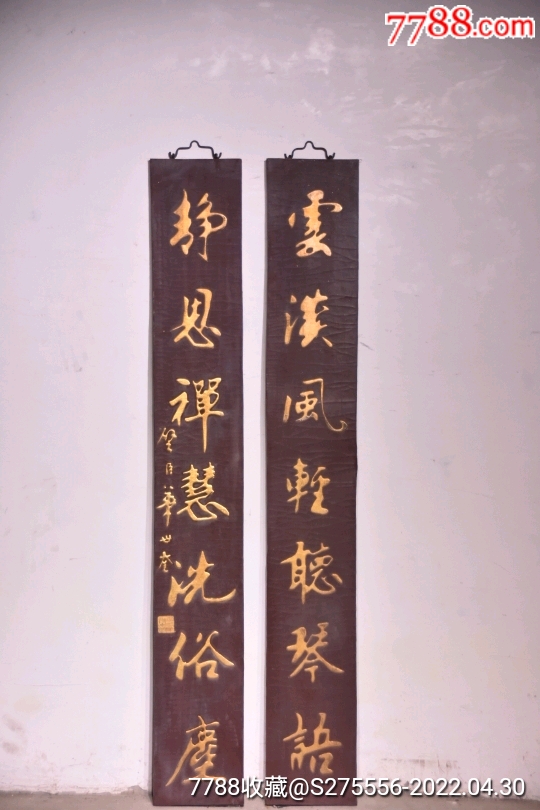 7788.com
雲淡風輕聽琴語
靜思禪慧洗俗塵
華世奎
7788收藏@S275556-2022.04.30